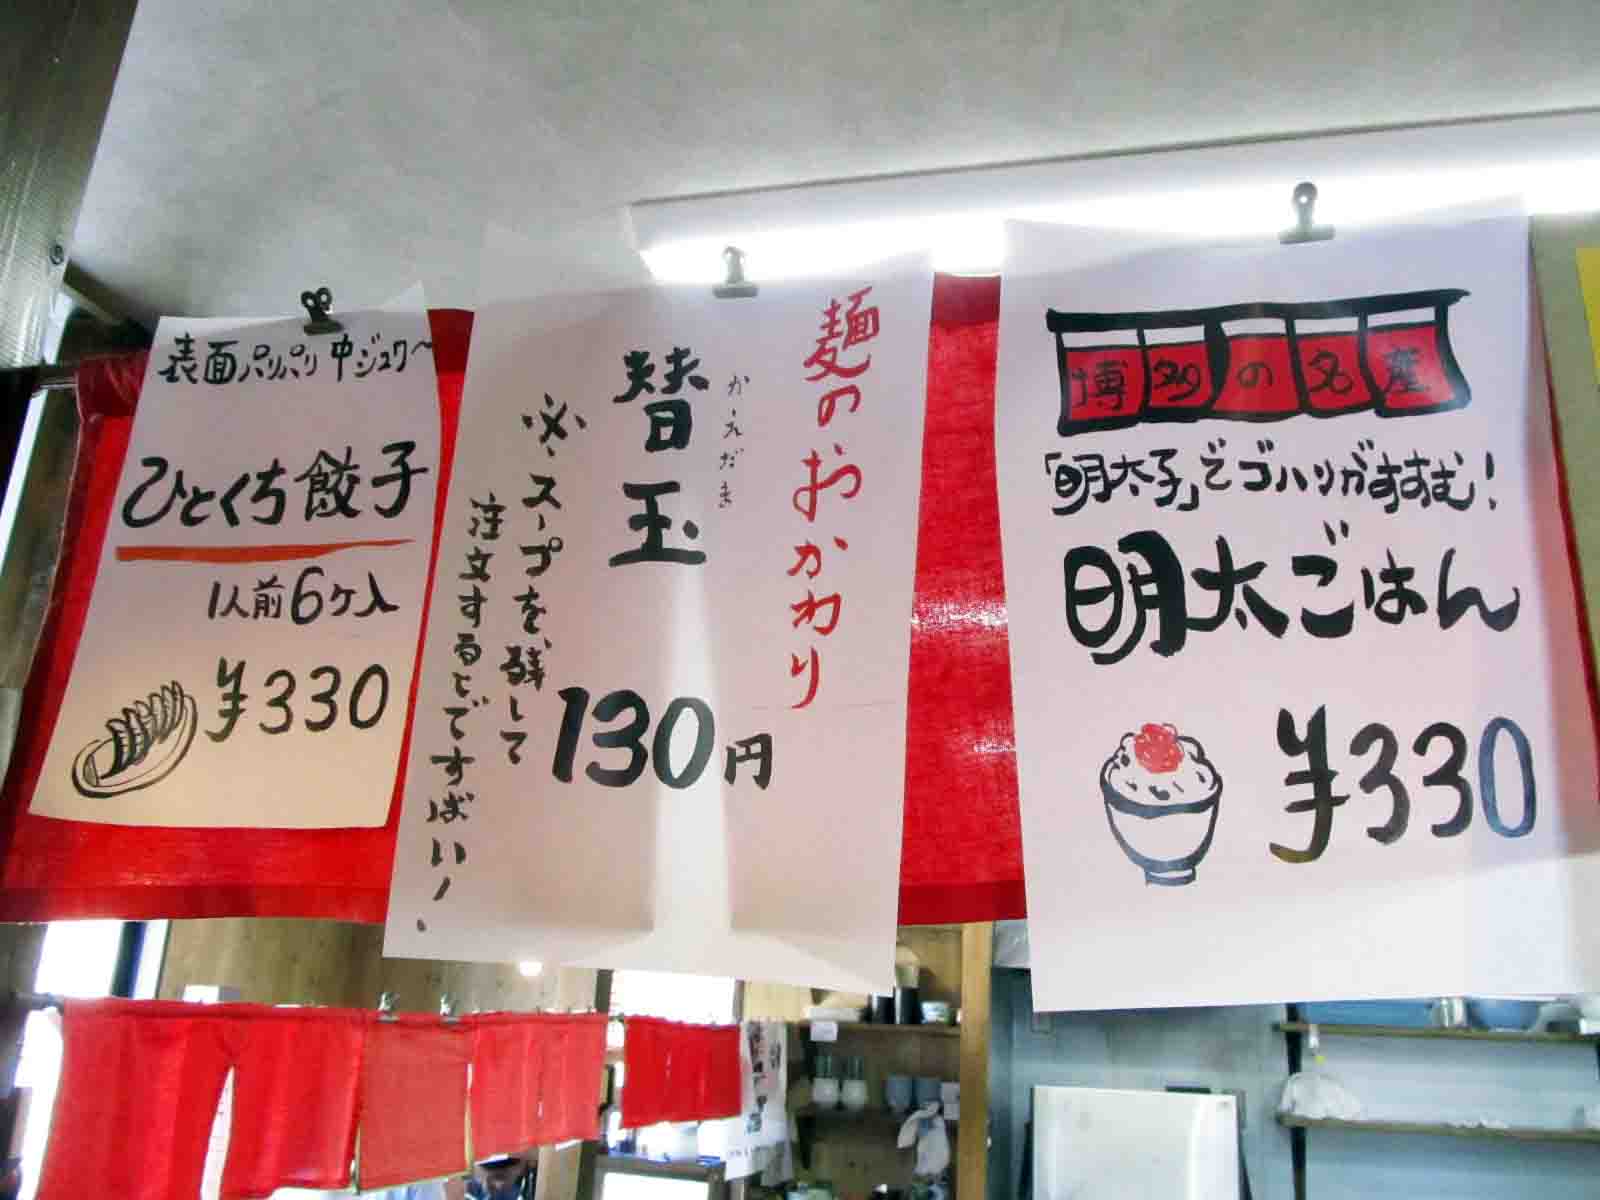 表面パリパリ中ジュワ～
ひとくち餃子
1人前6ケ入
¥330
麺のおかわり
かえだま
替玉
130円
※スープを残して
注文するとですばい！
博多の名産
「明太子」でゴハンがすすむ！
明太ごはん
¥330